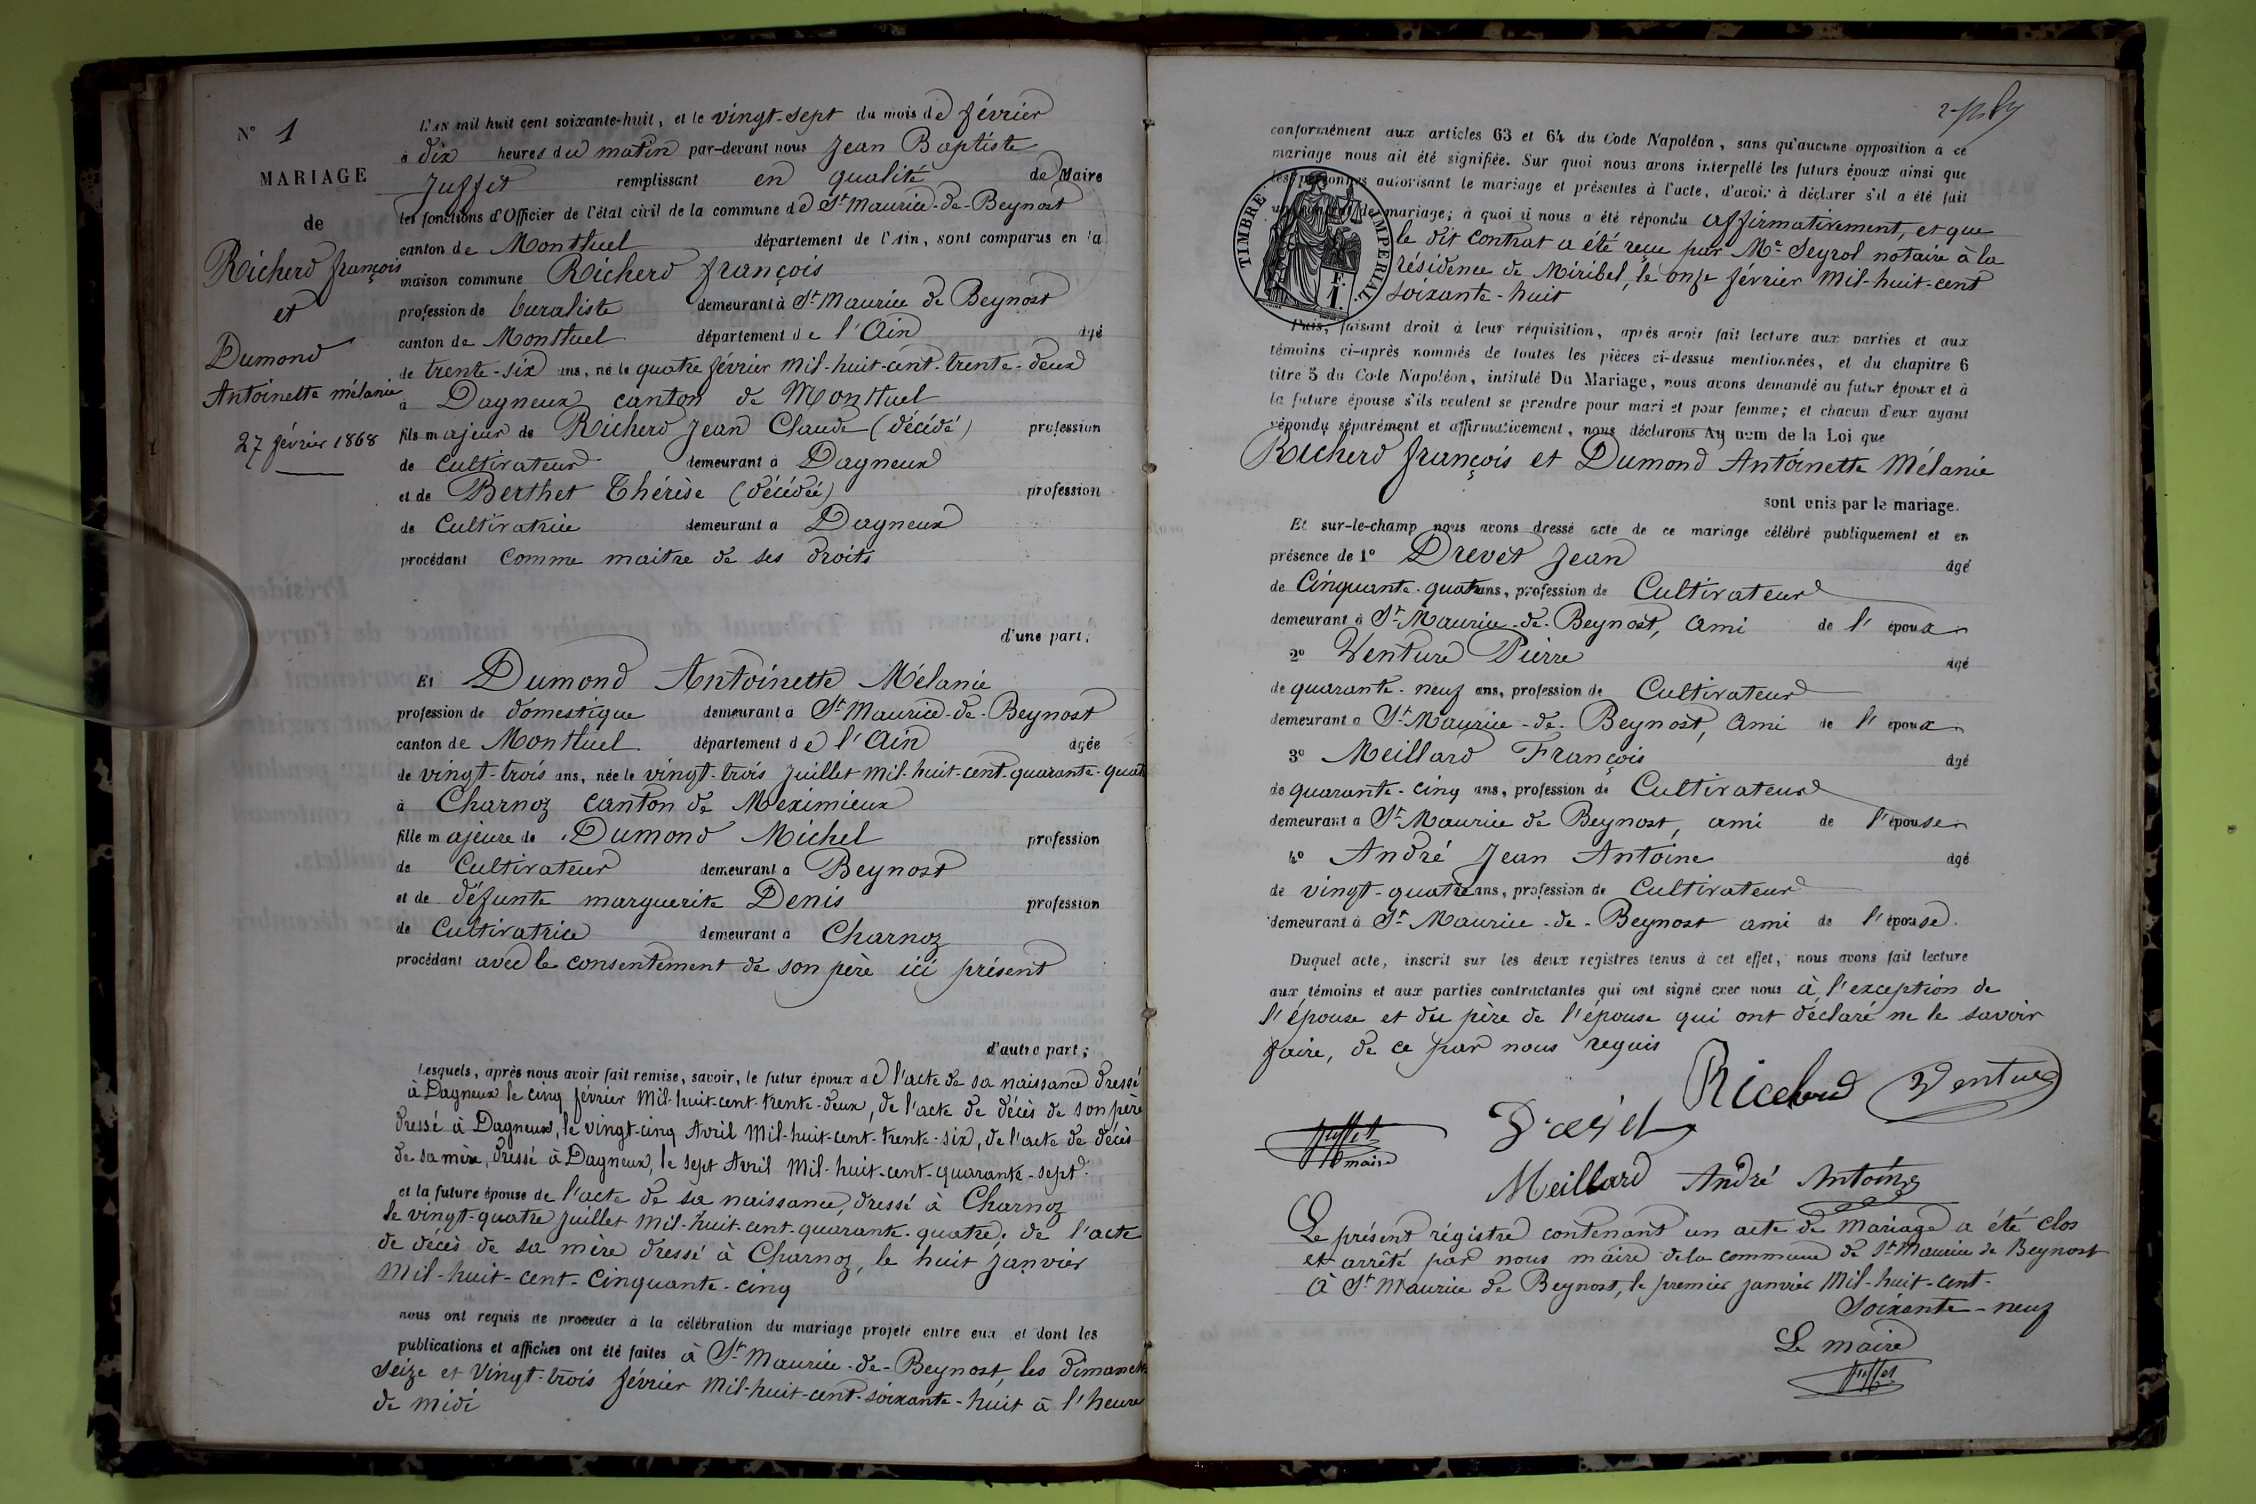 N° 1
MARIAGE
de
Richerd françois
et
Dumond
Antoinette mélanie
27 février 1868
L'AN mil huit cent soixante-huit, et le vingt-sept du mois de février
à dix heures du matin par-devant nous Jean Baptiste
Juffet remplissant en qualité de Maire
les fonctions d'Officier de l'état civil de la commune de St Maurice-de-Beynost
canton de Montluel département de l'Ain, sont comparus en la
maison commune Richerd françois
profession de buraliste demeurant à St Maurice de Beynost
canton de Montluel département de l'Ain âgé
de trente-six ans, né le quatre février mil-huit-cent-trente-deux
à Dagneux canton de Montluel
fils majeur de Richerd Jean Claude (décédé) profession
de Cultivateur demeurant à Dagneux
et de Berthet Thérèse (décédée) profession
de Cultivatrice demeurant à Dagneux
procédant comme maitre de ses droits
d'une part;
Et Dumond Antoinette Mélanie
profession de domestique demeurant à St Maurice-de-Beynost
canton de Montluel département de l'Ain âgée
de vingt-trois ans, née le vingt-trois Juillet mil-huit-cent-quarante-quatre
à Charnoz canton de Meximieux
fille majeure de Dumond Michel profession
de Cultivateur demeurant à Beynost
et de défunte marguerite Denis profession
de Cultivatrice demeurant à Charnoz
procédant avec le consentement de son père ici présent
d'autre part;
Lesquels, après nous avoir fait remise, savoir, le futur époux de l'acte de sa naissance dressé
à Dagneux le cinq février Mil-huit-cent-trente-deux, de l'acte de décès de son père
dressé à Dagneux, le vingt-cinq Avril Mil-huit-cent-trente-six, de l'acte de décès
de sa mère, dressé à Dagneux, le sept Avril Mil-huit-cent-quarante-sept
et la future épouse de l'acte de sa naissance, dressé à Charnoz
le vingt-quatre Juillet Mil-huit-cent-quarante-quatre, de l'acte
de décès de sa mère dressé à Charnoz, le huit janvier
Mil-huit-cent-Cinquante-cinq
nous ont requis de procéder à la célébration du mariage projeté entre eux et dont les
publications et affiches ont été faites à St Maurice-de-Beynost, les dimanches
seize et Vingt-trois février Mil-huit-cent-soixante-huit à l'heure
de midi
conformément aux articles 63 et 64 du Code Napoléon, sans qu'aucune opposition à ce
mariage nous ait été signifiée. Sur quoi nous avons interpellé les futurs époux ainsi que
les personnes autorisant le mariage et présentes à l'acte, d'avoir à déclarer s'il a été fait
un contrat de mariage; à quoi il nous a été répondu affirmativement, et que
le dit contrat a été reçu par Me Seyrol notaire à la
résidence de Miribel, le onze février Mil-huit-cent
soixante-huit
TIMBRE IMPERIAL
1 F.
Puis, faisant droit à leur réquisition, après avoir fait lecture aux parties et aux
témoins ci-après nommés de toutes les pièces ci-dessus mentionnées, et du chapitre 6
titre 5 du Code Napoléon, intitulé Du Mariage, nous avons demandé au futur époux et à
la future épouse s'ils veulent se prendre pour mari et pour femme; et chacun d'eux ayant
répondu séparément et affirmativement, nous déclarons Au nom de la Loi que
Richerd françois et Dumond Antoinette Mélanie
sont unis par le mariage.
Et sur-le-champ nous avons dressé acte de ce mariage célébré publiquement et en
présence de 1° Drevet Jean âgé
de Cinquante-quatre ans, profession de Cultivateur
demeurant à St Maurice-de-Beynost, ami de l'époux
2° Venture Pierre âgé
de quarante-neuf ans, profession de Cultivateur
demeurant à St Maurice-de-Beynost, ami de l'époux
3° Meillard François âgé
de quarante-cinq ans, profession de Cultivateur
demeurant à St Maurice de Beynost, ami de l'épouse
4° André Jean Antoine âgé
de vingt-quatre ans, profession de Cultivateur
demeurant à St Maurice-de-Beynost ami de l'épouse.
Duquel acte, inscrit sur les deux registres tenus à cet effet, nous avons fait lecture
aux témoins et aux parties contractantes qui ont signé avec nous à l'exception de
l'épouse et du père de l'épouse qui ont déclaré ne le savoir
faire, de ce par nous requis
Richerd Venture
Juffet
maire
Meillard André Antoine
Le présent régistre contenant un acte de mariage a été clos
et arrêté par nous maire de la commune de St Maurice de Beynost
à St Maurice de Beynost, le premier janvier Mil-huit-cent-
soixante-neuf
Le maire
Juffet